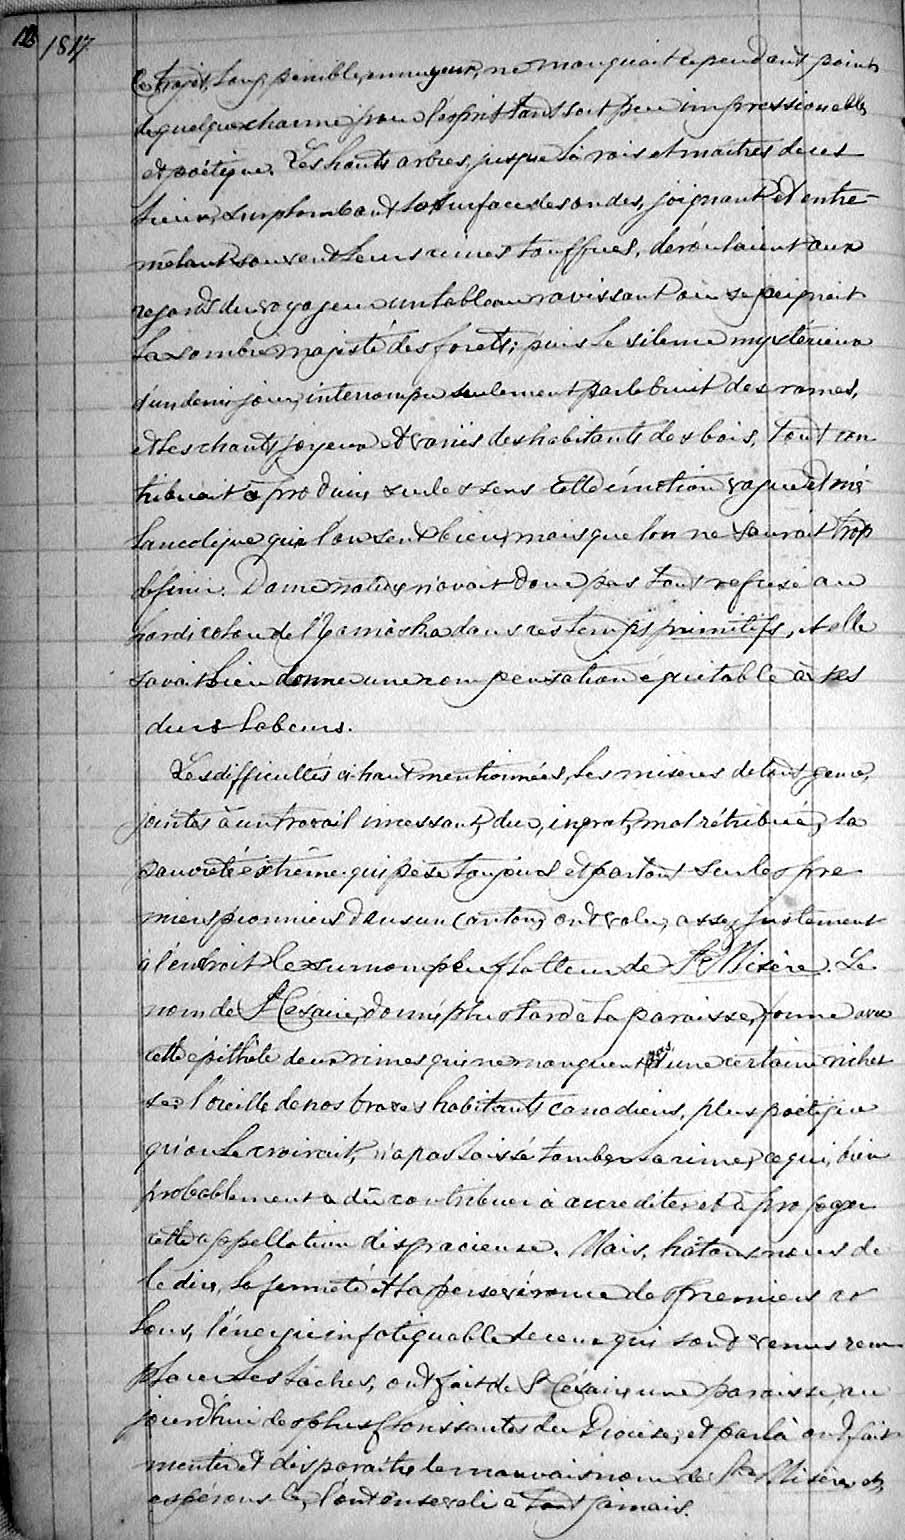 12 1817
Ce trajet, long, pénible, ennuyeux, ne manquait cependant point
de quelque charme pour l'esprit tant soit peu impressionable,
et poétique. Les hauts arbres, jusque là rois et maîtres de ces
lieux, surplombant la surface des ondes, joignant et entre-
mêlant souvent leurs cimes touffues, déroulaient aux
regards du voyageur un tableau ravissant où se peignait
la sombre majesté des forêts; puis le silence mystérieux
d'un demi jour, interrompu seulement par le bruit des rames,
et les chants joyeux et variés des habitants des bois, tout con
tribuait à produire sur les sens cette émotion vague et mé
lancolique que l'on sent bien, mais que l'on ne saurait trop
définir. Dame nature n'avait donc pas tout refusé au
hardi colon de l'Yamaska dans ces temps primitifs, et elle
savait bien donner une compensation équitable à ses
durs labeurs.
Les difficultés ci haut mentionnées, les misères de tout genre,
jointes à un travail incessant, dur, ingrat, mal rétribué, la
pauvreté extrême qui pèse toujours et partout sur les pre
miers pionniers dans un canton, ont valu, assez justement
à l'endroit le surnom peu flatteur de Ste Misère. Le
nom de St Césaire, donné plus tard à la paroisse, forme avec
cette épithète deux rimes qui ne manquent pas d'une certaine riches
se: l'oreille de nos braves habitants canadiens, plus poétique
qu'on le croirait, n'a pas laissé tomber la rime, ce qui, bien
probablement a dû contribuer à accréditer et à propager
cette appellation disgracieuse. Mais, hâtons nous de
le dire, la fermeté et la persévérance des premiers co
lons, l'énergie infatiguable de ceux qui sont venus rem
placer les lâches, ont fait de St Césaire une paroisse, au
jourd'hui des plus florissantes du Diocèse, et par là ont fait
mentir et disparaître le mauvais nom de Ste Misère, et,
espérons le, l'ont enseveli à tout jamais.